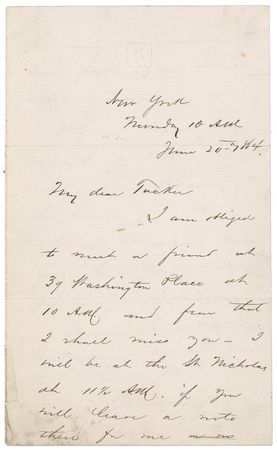 New York
Monday 10 AM
June 20th/64.
My dear Tucker
I am obliged
to meet a friend at
39 Washington Place at
10 AM and fear that
I shall miss you – I
will be at the St Nicholas
at 11½ AM. if you
will leave a note
there for me